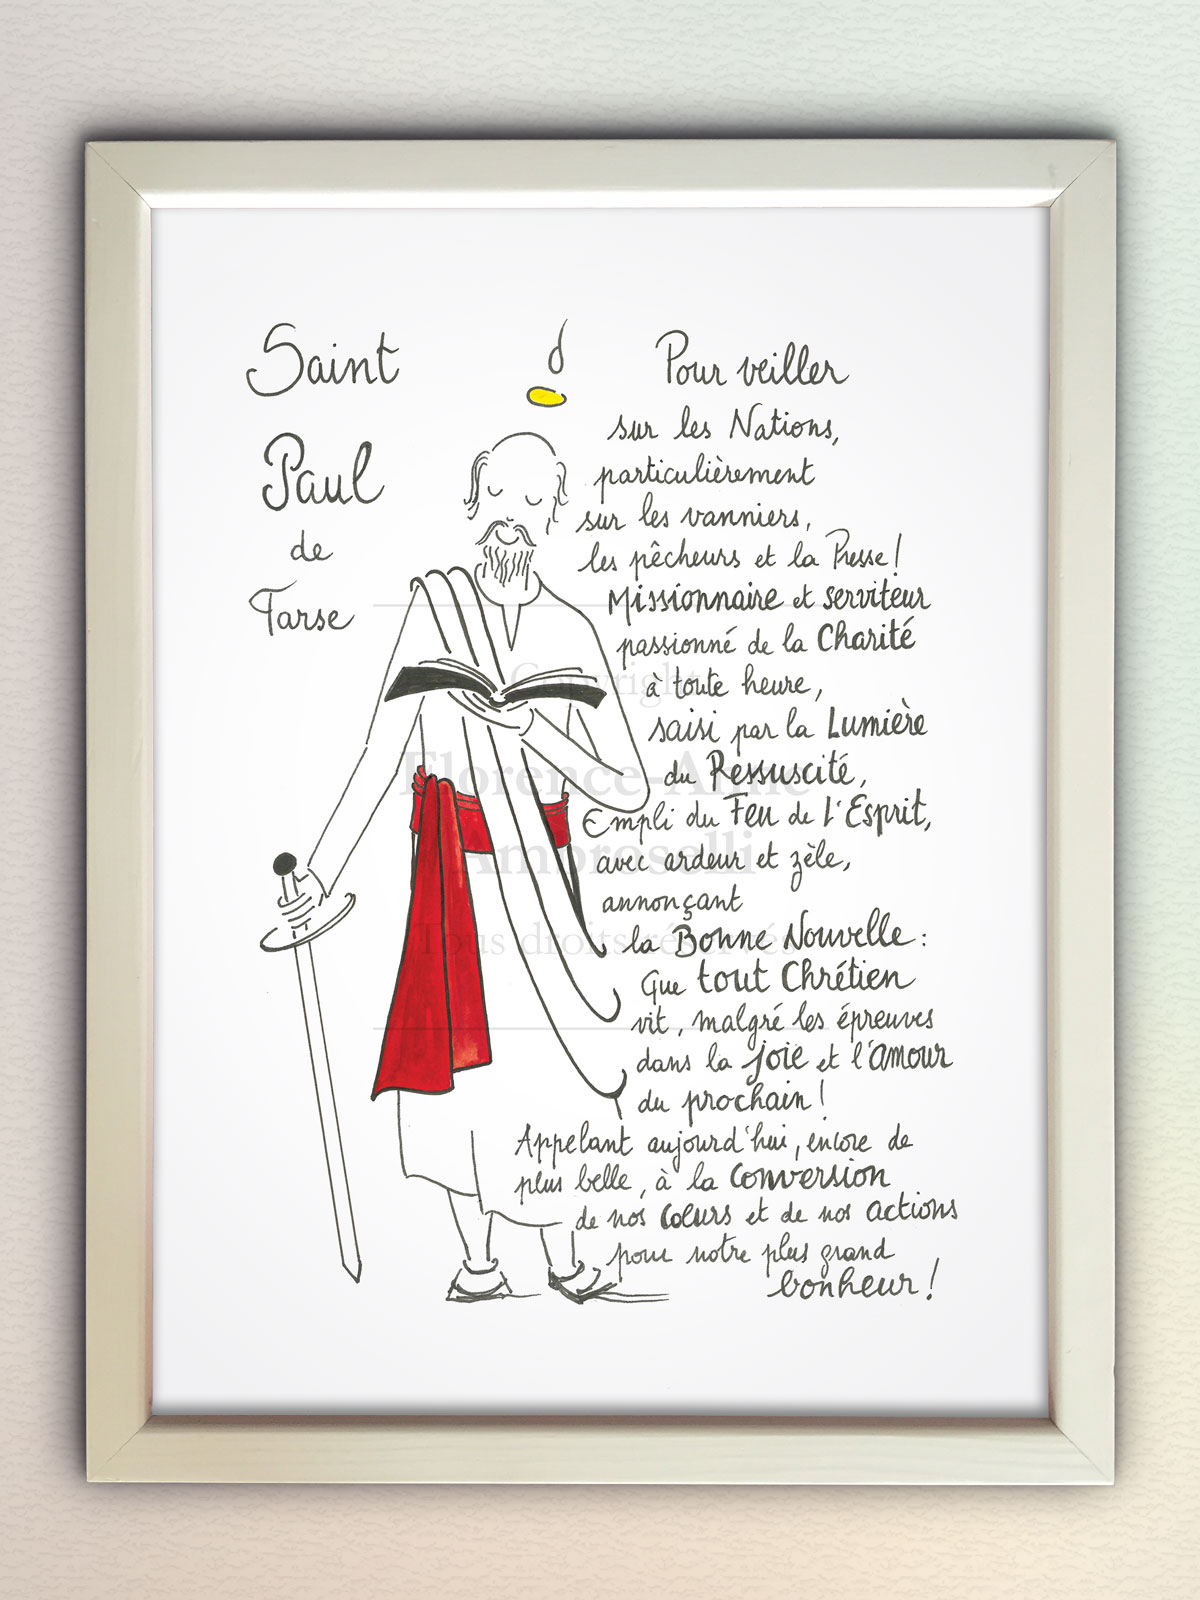 Saint
Paul
de
Tarse
Pour veiller
sur les Nations,
particulièrement
sur les vanniers,
les pêcheurs et la Presse !
Missionnaire et serviteur
passionné de la Charité
à toute heure,
saisi par la Lumière
du Ressuscité,
Empli du Feu de l'Esprit,
avec ardeur et zèle,
annonçant
la Bonne Nouvelle :
Que tout Chrétien
vit, malgré les épreuves
dans la joie et l'amour
du prochain !
Appelant aujourd'hui, encore de
plus belle, à la conversion
de nos cœurs et de nos actions
pour notre plus grand
bonheur !
Copyright
Florence-Anne
Ambroselli
Tous droits réservés